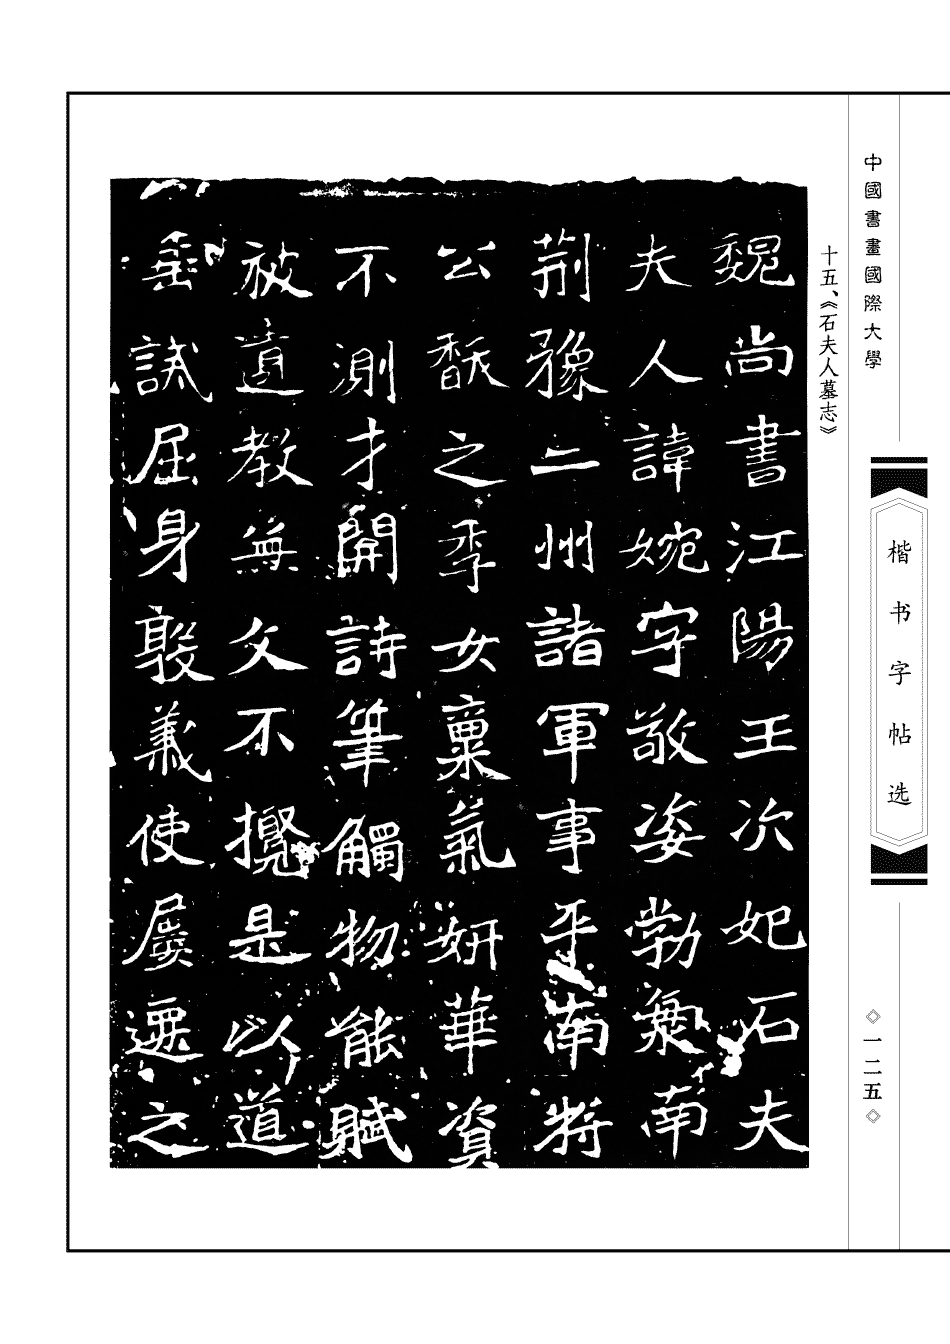 中國書畫國際大學
楷书字帖选
◇一二五◇
十五、《石夫人墓志》
魏尚書江陽王次妃石夫
夫人諱婉字敬姿勃海南
荊豫二州諸軍事平南將
公馛之季女稟氣妍華資
不測才開詩筆觸物能賦
被教無文不攬是以道
垂誡屈身義使屢之